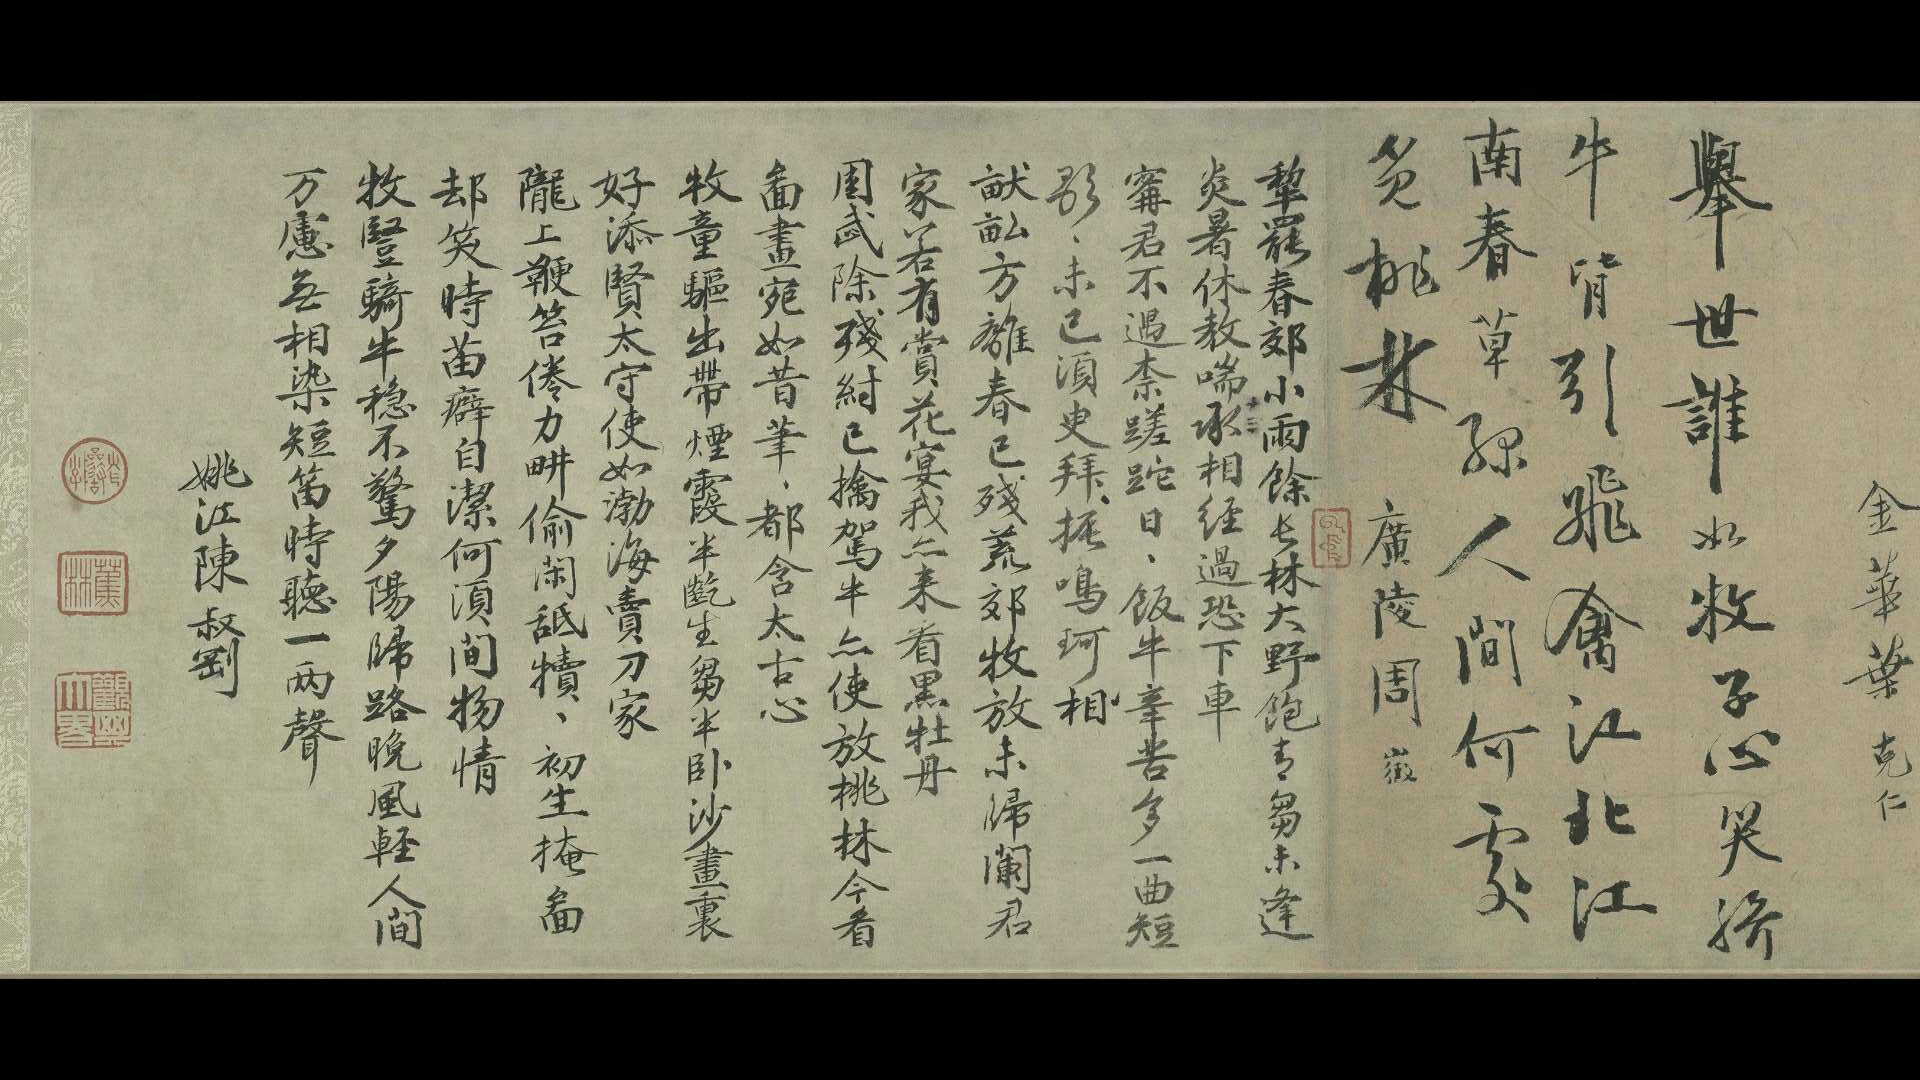 金華葉克仁
舉世誰如牧子心哭騎
牛背引飛禽江北江
南春草綠人間何處
覓桃林 廣陵周徽
犂罷春郊小雨餘長林大野飽青芻未逢
炎暑休教喘承相經過恐下車
甯君不遇柰蹉跎日、飯牛辛苦多一曲短
歌、未已須史拜、振鳴珂相
畎畝方離春已殘荒郊牧放未歸闌君
家若有賞花宴我亦来看黑牡丹
周武除殘紂已擒駕牛亦使放桃林今看
啚畫宛如昔筆、都含太古心
牧童驅出帶煙霞半齕生芻半卧沙畫裏
好添賢太守使如渤海賣刀家
隴上鞭笞倦力畊偷閑舐犢、初生掩啚
却笑時苗癖自潔何須間物情
牧豎騎牛穏不驚夕陽歸路晚風輕人間
万慮無相染短笛時聽一兩聲
姚江陳叔剛